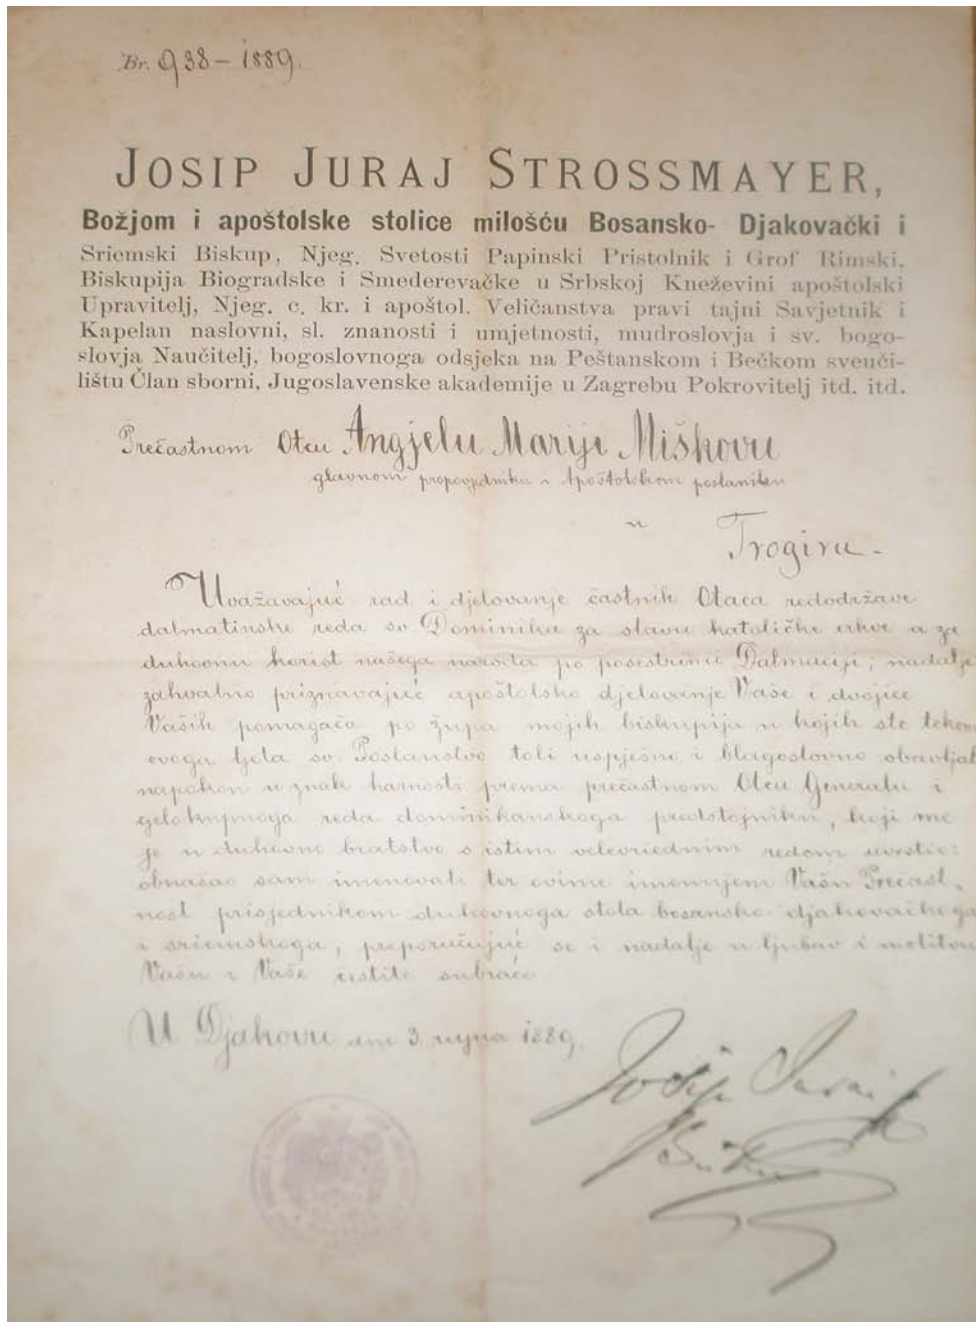 Br. 938 – 1889.
JOSIP JURAJ STROSSMAYER,
Božjom i apoštolske stolice milošću Bosansko- Djakovački i
Sriemski Biskup, Njeg. Svetosti Papinski Pristolnik i Grof Rimski,
Biskupija Biogradske i Smederevačke u Srbskoj Kneževini apoštolski
Upravitelj, Njeg. c. kr. i apoštol. Veličanstva pravi tajni Savjetnik i
Kapelan naslovni, sl. znanosti i umjetnosti, mudroslovja i sv. bogo-
slovja Naučitelj, bogoslovnoga odsjeka na Peštanskom i Bečkom sveuči-
lištu Član sborni, Jugoslavenske akademije u Zagrebu Pokrovitelj itd. itd.
Prečastnom Otcu Angjelu Mariji Miškovu
glavnom propovjedniku i Apoštolskom poslaniku
u
Trogiru -
Uvažavajuć rad i djelovanje častnih Otaca redodržave
dalmatinske reda sv Dominika za slavu katoličke crkve a za
duhovnu korist našega naroda po posestrimi Dalmaciji; nadalje
zahvalno priznavajuć apoštolsko djelovanje Vaše i dvojice
Vaših pomagača po župa mojih biskupija u kojih ste tekom
ovoga ljeta sv. Poslanstvo toli uspješno i blagoslovno obavljal
napokon u znak harnosti prema prečastnom Otcu Generalu i
reda dominikanskoga predstojniku, koji me
je u duhovno bratstvo s istim velevriednim redom uvestio:
obnašao sam imenovati ter ovime imenujem Vašu Prečast-
nost prisjednikom duhovnoga stola bosansko-djakovačkoga
i sriemskoga, preporučujuć se i nadalje u ljubav i molitvu
Vašu i Vaše čestite subraće
U Djakovu dne 3. rujna 1889.
Josip Juraj
Biskup